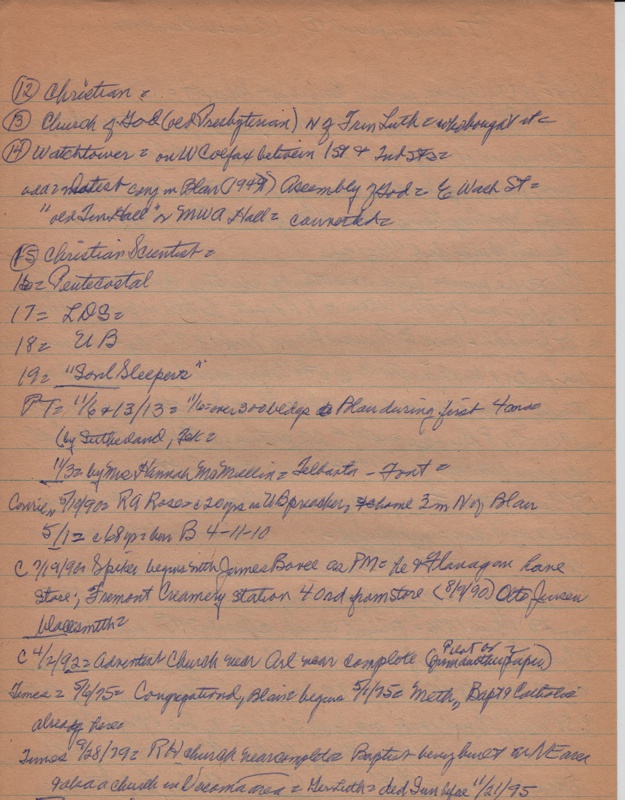 (12) Christian =
(13) Church of God (old Presbyterian) N of Trin Luth = who bought it =
(14) Watchtower = on W Colfax between 1st & 2nd Sts =
cong in Blair (1949) Assembly of God = E Wash St =
"old Hall" MWA Hall =
(15) Christian Scientist =
16 = Pentecostal
17 = LDS =
18 = UB
19 = "Soul Sleepers"
PT = 11/6 & 13/13 = 11/6 = over 300 bldgs Blair during first 4 mos
(by Sutherland,
11/3 = by Mrs Hannah McMillin = Font =
5/19/90 = RA Rose = c 20 yrs as UB preacher, home 3 m N of Blair
5/1 = c 68 yr = born B 4-11-10
C 7/19/90 = Spiker begins with James Bovee as PM = he & Flanagan have
store; Fremont Creamery station 40 rd from store (8/9/90) Otto Jensen
blacksmith =
C 4/2/92 = Adventist Church near near complete
Times = 5/6/75 = Congregational, Blair begins 5/1/75 = Meth, Bapt & Catholic
already here
Times 9/28/79 = RH church near complete = Baptist being built in NE area
also a church in Vacoma area = Ger Luth = ded Sun before 11/21/95